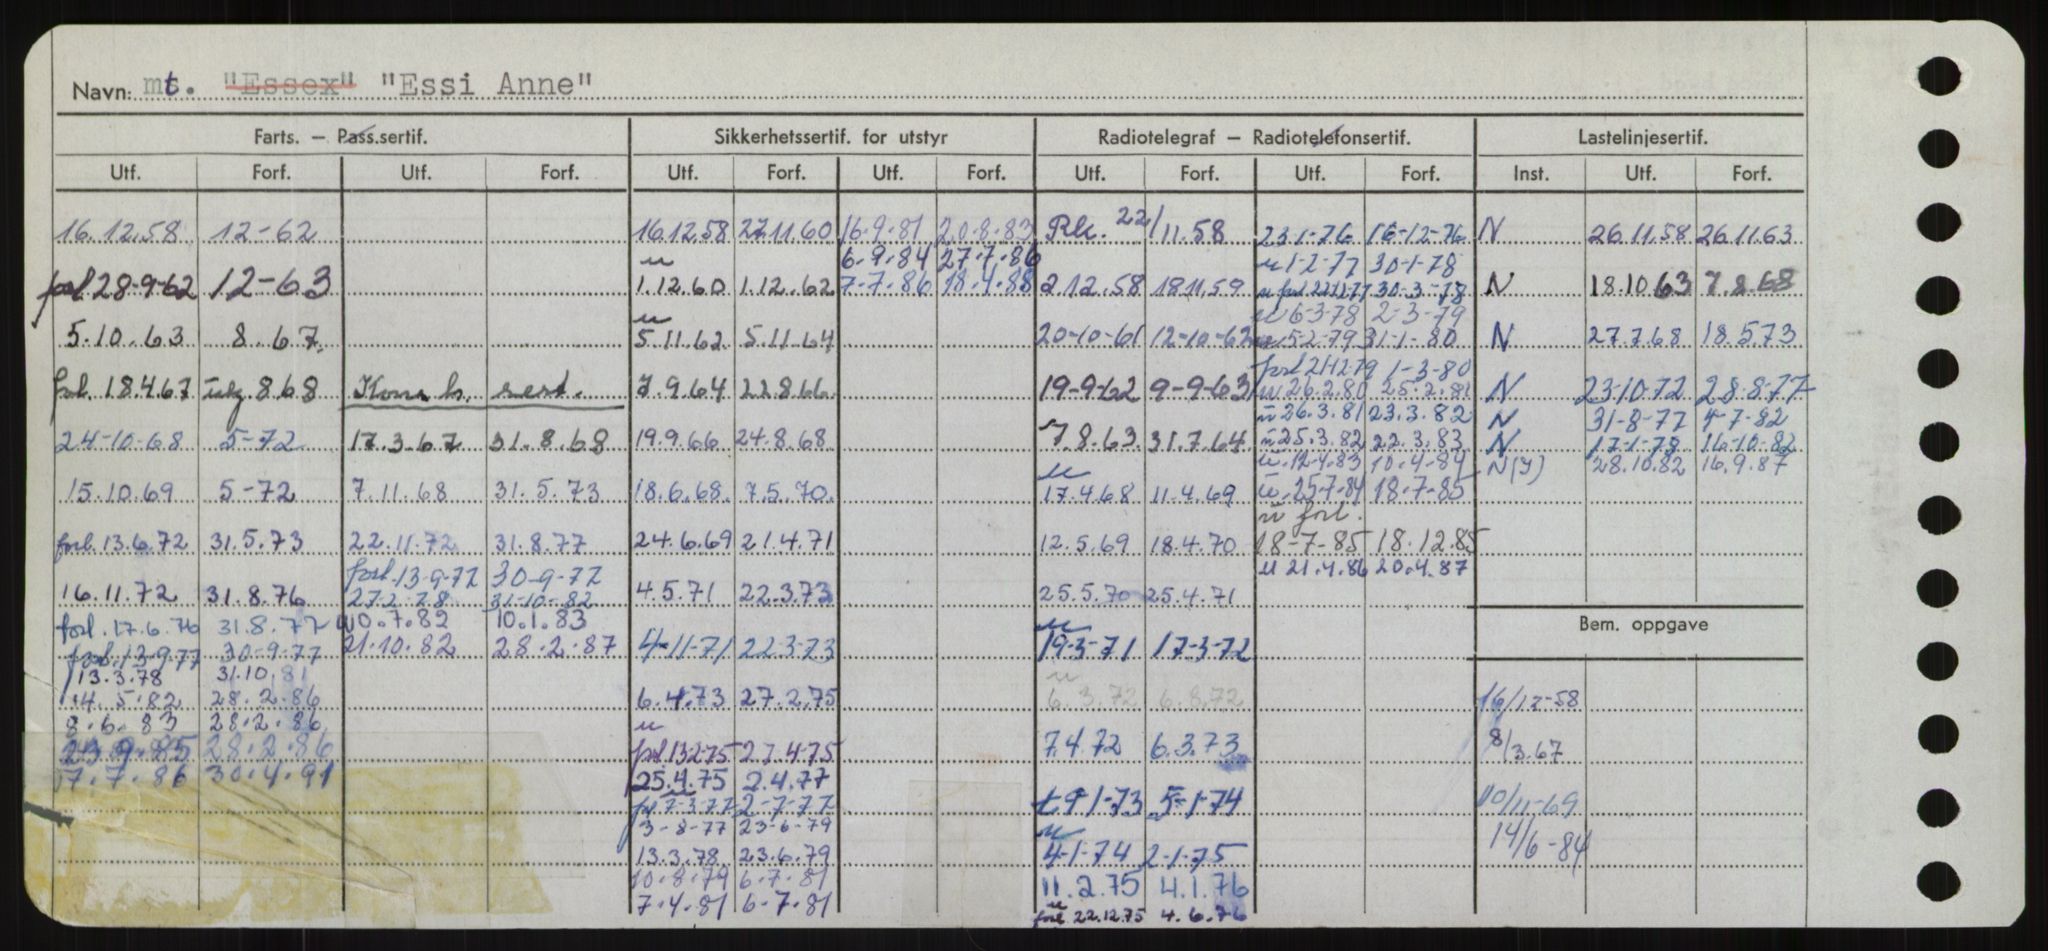 Navn: mt. "Essex" "Essi Anne"
Farts. — Pass.sertif. Sikkerhetssertif. for utstyr Radiotelegraf — Radiotelefonsertif. Lastelinjesertif.
Utf. Forf. Utf. Forf. Utf. Forf. Utf. Forf. Utf. Forf. Utf. Forf. Inst. Utf. Forf.
16.12.58 12-62 16.12.58 27.11.60 16.9.81 20.8.83 Rk. 22/11.58 23.1-76 16-12-76 N 26.11.58 26.11.63
u 6.9.84 27.7.86 u 1-2-77 30-1-78
forl 28-9-62 12-63 1.12.60 1.12.62 7-7.86 18.4.88 2.12.58 18.11.59 u forl 30-3-78 N 18.10.63 7.8.68
u u 6-3-78 2-3-79
5.10.63 8.67. 5.11.62 5.11.64 20-10-61 12-10-62 u 5-2-79 31-1-80 N 27.7.68 18.5.73
forl 21-12-79 1-3-80
forl. 18.4.67 8.68 Kons b. sert. 7.9.64 22.8.66 19-9-62 9-9-63 u 26.2.80 25.2.81 N 23-10-72 28-8-77
u 26.3.81 23.3.82 N 31-8-77 4-7-82
24-10-68 5-72 17.3.67 31.8.68 19.9.66 24.8.68 7.8.63 31.7.64 u 25.3.82 22.3.83 N 17-1-78 16-10-82
u u. 12-4.83 10.4-84 N(I) 28.10.82 16.9.87
15.10.69 5-72 7.11.68 31.5.73 18.6.68. 7.5.70. 17.4.68 11.4.69 u. 25-7-84 18-7-85
u forl.
forl. 13.6.72 31.5.73 22.11.72 31.8.77 24.6.69 21.4.71 12.5.69 18.4.70 18-7-85 18.12.85
forl. 13-9-77 30-9-77 u 21.4.86 20.4.87
16.11.72 31.8.76 27.2.78 31-10-82 4.5.71 22.3.73 25.5.70 25.4.71
forl. 17.6.76 31.8.77 10.7.82 10.1.83 u Bem. oppgave
forl. 13-9-77 30-9-77 21.10.82 28.2.87 4-11-71 22.3.73 19-3-71 17-3-72
13.3.78 31.10.81 u
14.5.82 28.2.86 6.4.73 27.2.75 6.3.72 6.8.72 16/12-58
8.6.83 28.2.86 u
23.9.85 28.2.86 forl 13-2-75 27.4.75 7.4.72 6.3.73 8/3.67
7.7.86 30.4.91 25.4.75 2.4.77
u
forl 7-3-77 2-7-77 5-1-74 10/11-69
3-8-77 23-6-79 u
13.3.78 23.6.79 4-1-74 2-1-75 14/6-84
10.8.79 6.7.81 11.2.75 4.1.76
7.4.81 6.7.81 u forl 22.12.75 4.6.76